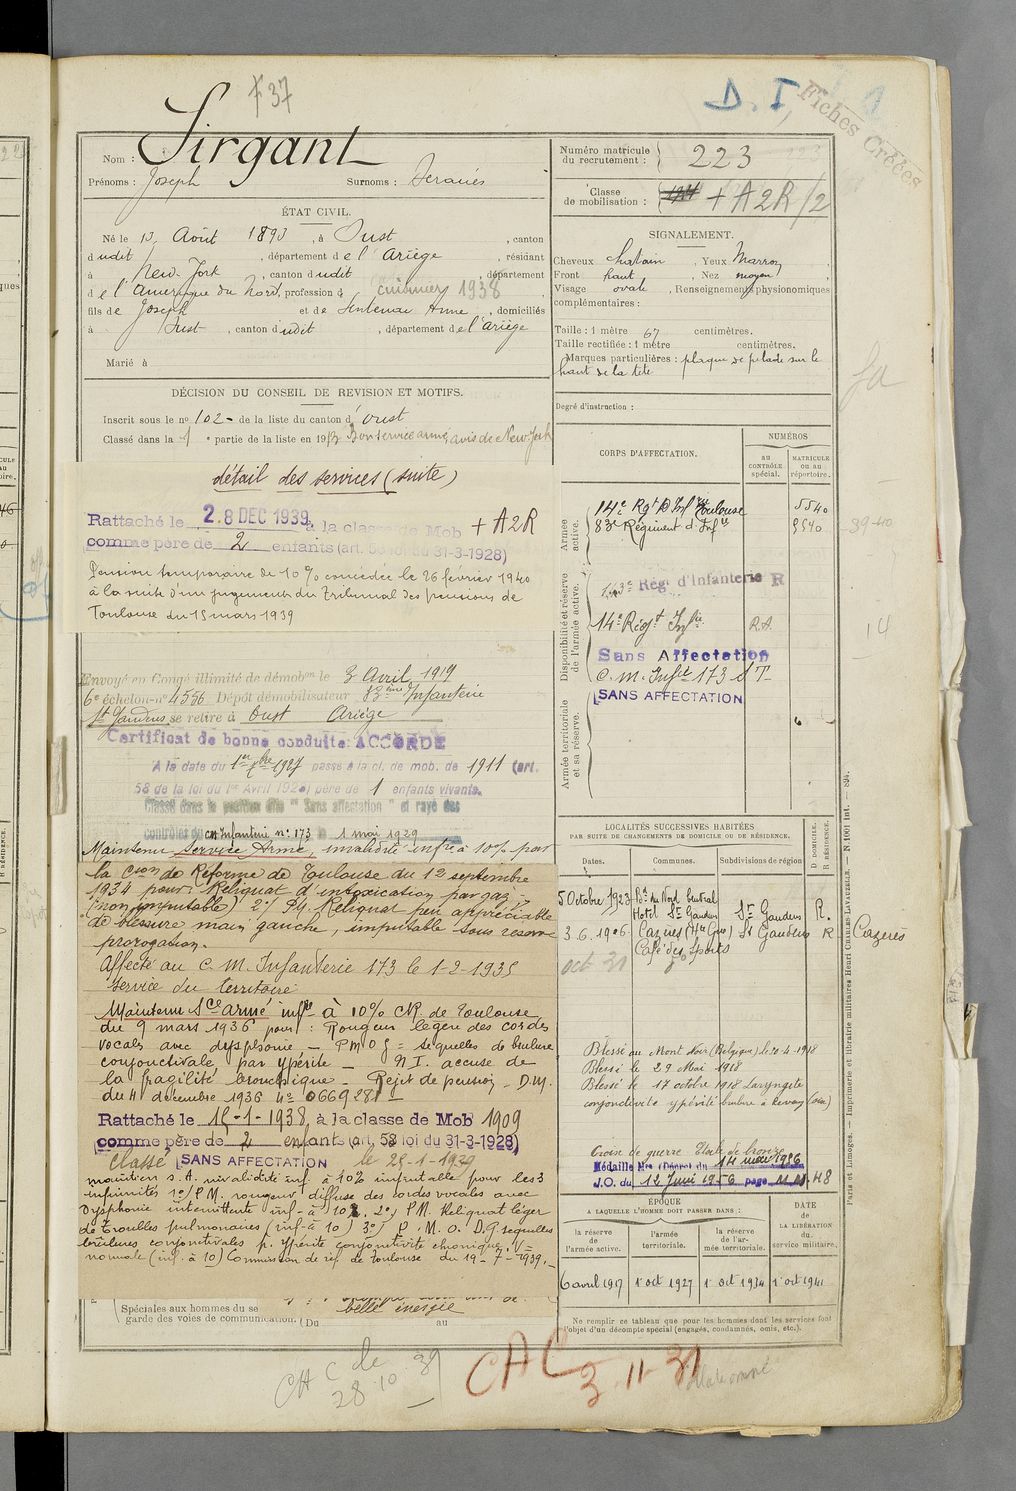 F 37
D. I,
Fiches Créées
Sirgant
Nom :
Prénoms : Joseph Surnoms :
Numéro matricule du recrutement : 223
Classe de mobilisation : + A2R/2
ÉTAT CIVIL.
Né le 13 Août 1893, à Oust, canton
dudit, département de l'Ariège, résidant
à New-York, canton dudit, département
de l'Amérique du Nord, profession de cuisinier 1938
fils de Joseph et de Sentenac Anne, domiciliés
à Oust, canton dudit, département de l'Ariège
Marié à
SIGNALEMENT.
Cheveux chatain, Yeux Marron
Front haut, Nez moyen
Visage ovale, Renseignements physionomiques
complémentaires :
Taille : 1 mètre 67 centimètres.
Taille rectifiée : 1 mètre centimètres.
Marques particulières : plaque de pelade sur le
haut de la tete
Degré d'instruction :
DÉCISION DU CONSEIL DE REVISION ET MOTIFS.
Inscrit sous le nº 102 - de la liste du canton d'Oust
Classé dans la 1e partie de la liste en 1913 Bon service armé, avis de New-York
détail des services (suite)
Rattaché le 28 DEC 1939, à la classe de Mob + A2R
comme père de 2 enfants (art. 58 loi du 31-3-1928)
Pension temporaire de 10% concédée le 26 février 1940
à la suite d'un jugement du Tribunal des pensions de
Toulouse du 15 mars 1939
Envoyé en Congé illimité de démobon le 3 Avril 1919
6e échelon-nº 4556 Dépôt démobilisateur 83ème Infanterie
St Gaudens se retire à Oust Ariège
Certificat de bonne conduite: ACCORDÉ
A la date du 1er 1927 passe à la cl. de mob. de 1911 (art.
58 de la loi du 1er Avril 192 ) père de 1 enfants vivants.
Classé dans la position dite "Sans affectation" et rayé des
contrôles du CM Infanterie nº 173 le 1 mai 1929
Maintenu Service Armé, invalidité infre à 10% par
la Cson de Réforme de Toulouse du 12 septembre
1934 pour: Reliquat d'intoxication par gaz
(non imputable) 2º) P.M. Reliquat peu appréciable
de blessure main gauche, imputable sous reserve
prorogation.
Affecté au C. M. Infanterie 173 le 1-2-1935
Service du territoire
Maintenu Sce armé infre à 10% CR de Toulouse
du 9 mars 1936 pour : Rougeur legère des cordes
vocales avec dysphonie - P M O g = séquelles de brulure
conjonctivale par ypérite - N I. accuse de
la fragilité bronchique - Rejet de pension - D.M.
du 11 décembre 1936
Rattaché le 15-1-1938, à la classe de Mob 1909
comme père de 2 enfants (art. 58 loi du 31-3-1928)
Classé SANS AFFECTATION le 25-1-1939
maintien S.A. invalidité inf. à 10% imputable pour les 3
infirmités 1º/ P.M. rougeur diffuse des cordes vocales avec
Dysphonie intermittente inf-à 10%. 2º/ P.M. Reliquat léger
de troubles pulmonaires (inf-à 10) 3º/ P.M.O.D.G. sequelles
brûlures conjonctivales p. ypérite conjonctivite chronique V=
normale (inf. à 10) Commission de réf. de Toulouse du 19-7-1939.
belle énergie
Spéciales aux hommes du se
garde des voies de communication. (Du au
CORPS D'AFFECTATION.
NUMÉROS
au contrôle spécial.
MATRICULE ou au répertoire.
Armée active.
14e Rgt d'Inf Toulouse 5540
83e Régiment d'Infie 9540
Disponibilité et réserve de l'armée active.
Régt d'Infanterie R
14e Régt Infie R.A.
Sans Affectation
C. M. Infie 173 S T
SANS AFFECTATION
Armée territoriale et sa réserve.
39-40
14
LOCALITÉS SUCCESSIVES HABITÉES
PAR SUITE DE CHANGEMENTS DE DOMICILE OU DE RÉSIDENCE.
Dates. Communes. Subdivisions de région
D DOMICILE. R RÉSIDENCE.
5 Octobre 1923 Bd du Nord Central
Hotel St Gaudens St Gaudens R.
3.6.1926 Cazères (Hte Gne) St Gaudens R Cazerès
Café des Sports
oct 31
Blessé au Mont Noir (Belgique) le 20-4-1918
Blessé le 29 Mai 1918
Blessé le 17 octobre 1918 Laryngite
conjonctivite ypérité brulure à
Croix de guerre Etoile de bronze
Médaille Mre (Décret du 14 mai 1956
J.O. du 12 Juin 1956 page
ÉPOQUE
A LAQUELLE L'HOMME DOIT PASSER DANS :
la réserve de l'armée active.
l'armée territoriale.
la réserve de l'armée territoriale.
DATE DE LA LIBÉRATION du service militaire.
6 avril 1917 1er oct 1927 1er oct 1934 1er oct 1941
Ne remplir ce tableau que pour les hommes dont les services font
l'objet d'un décompte spécial (engagés, condamnés, omis, etc.).
Paris et Limoges. — Imprimerie et librairie militaires Henri CHARLES-LAVAUZELLE. — N. 100) Int. —
CH C de 39
28.10
CAC 3.11.31